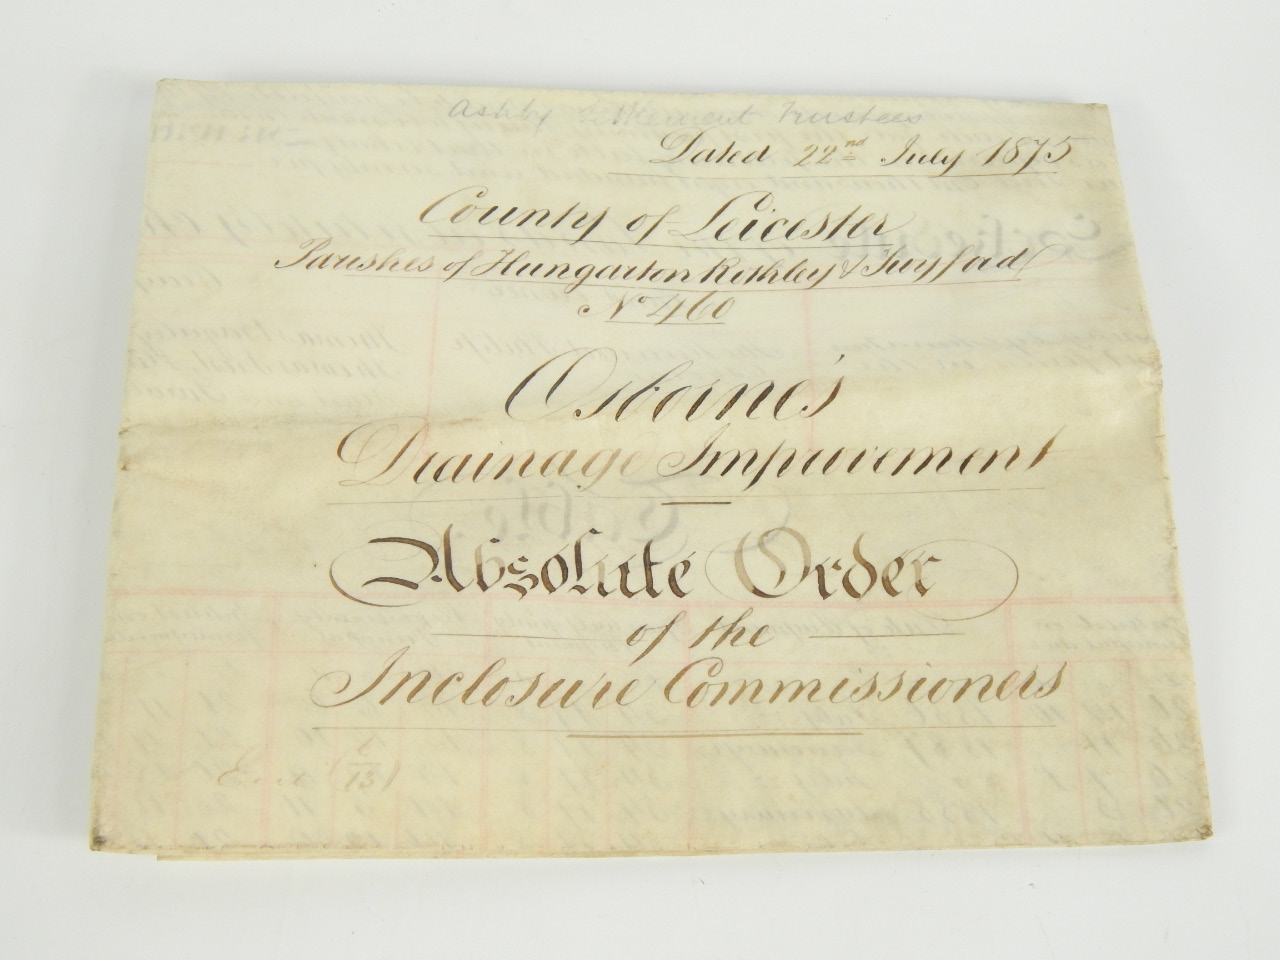 Ashby Settlement Trustees
Dated 22nd July 1875
County of Leicester
Parishes of Hungarton Rothley & Twyford
No 460
Osborne's
Drainage Improvement
Absolute Order
of the
Inclosure Commissioners